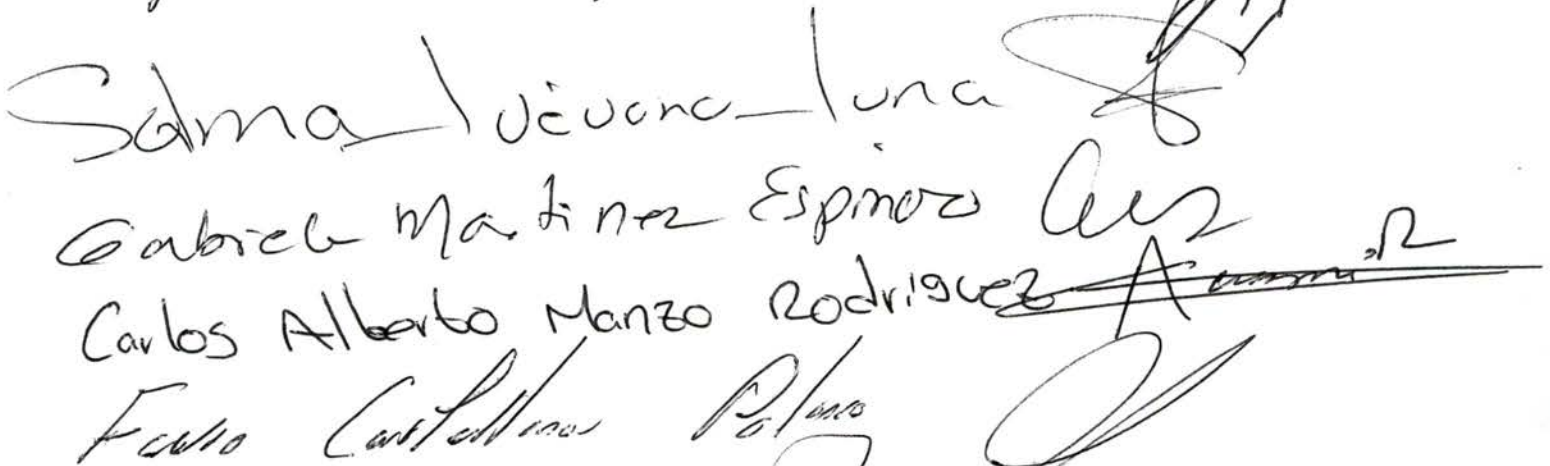 Salma Luévano Luna
Gabriela Martinez Espinoza
Carlos Alberto Manzo Rodriguez
Favio Castellanos Polanco